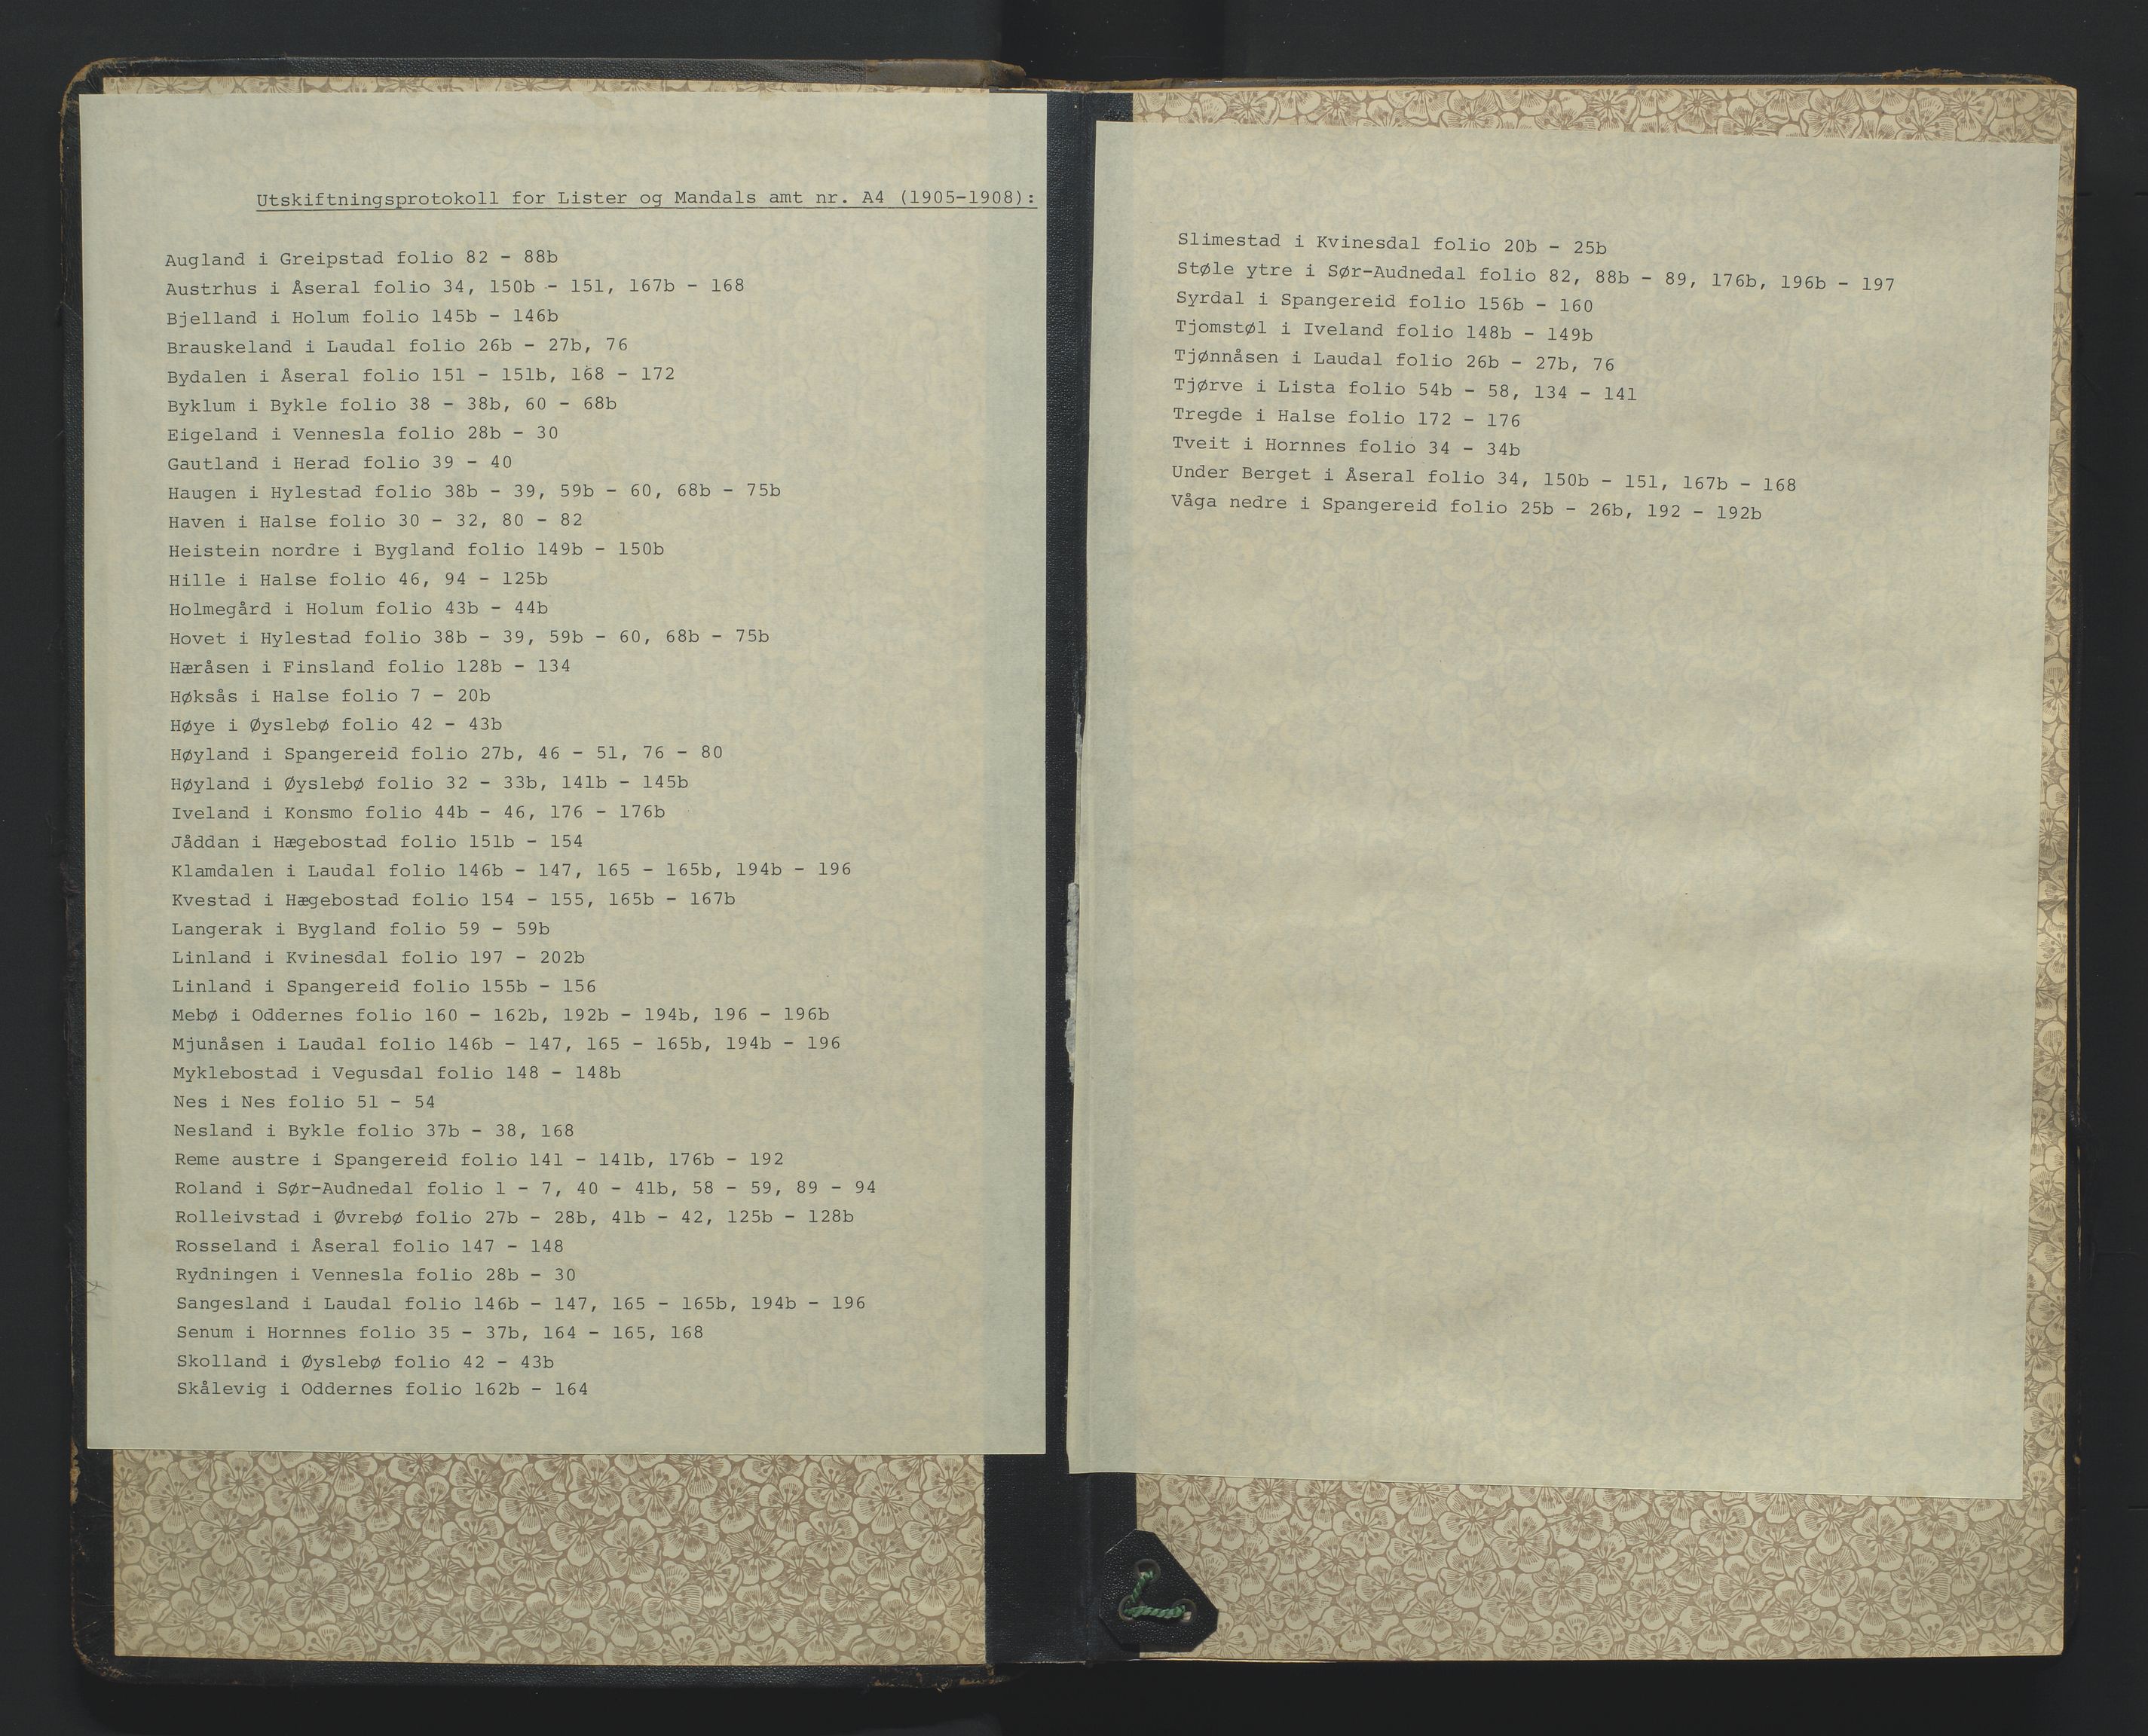 Utskiftningsprotokoll for Lister og Mandals amt nr. A4 (1905-1908):
Augland i Greipstad folio 82 - 88b
Austrhus i Åseral folio 34, 150b - 151, 167b - 168
Bjelland i Holum folio 145b - 146b
Brauskeland i Laudal folio 26b - 27b, 76
Bydalen i Åseral folio 151 - 151b, 168 - 172
Byklum i Bykle folio 38 - 38b, 60 - 68b
Eigeland i Vennesla folio 28b - 30
Gautland i Herad folio 39 - 40
Haugen i Hylestad folio 38b - 39, 59b - 60, 68b - 75b
Haven i Halse folio 30 - 32, 80 - 82
Heistein nordre i Bygland folio 149b - 150b
Hille i Halse folio 46, 94 - 125b
Holmegård i Holum folio 43b - 44b
Hovet i Hylestad folio 38b - 39, 59b - 60, 68b - 75b
Hæråsen i Finsland folio 128b - 134
Høksås i Halse folio 7 - 20b
Høye i Øyslebø folio 42 - 43b
Høyland i Spangereid folio 27b, 46 - 51, 76 - 80
Høyland i Øyslebø folio 32 - 33b, 141b - 145b
Iveland i Konsmo folio 44b - 46, 176 - 176b
Jåddan i Hægebostad folio 151b - 154
Klamdalen i Laudal folio 146b - 147, 165 - 165b, 194b - 196
Kvestad i Hægebostad folio 154 - 155, 165b - 167b
Langerak i Bygland folio 59 - 59b
Linland i Kvinesdal folio 197 - 202b
Linland i Spangereid folio 155b - 156
Mebø i Oddernes folio 160 - 162b, 192b - 194b, 196 - 196b
Mjunåsen i Laudal folio 146b - 147, 165 - 165b, 194b - 196
Myklebostad i Vegusdal folio 148 - 148b
Nes i Nes folio 51 - 54
Nesland i Bykle folio 37b - 38, 168
Reme austre i Spangereid folio 141 - 141b, 176b - 192
Roland i Sør-Audnedal folio 1 - 7, 40 - 41b, 58 - 59, 89 - 94
Rolleivstad i Øvrebø folio 27b - 28b, 41b - 42, 125b - 128b
Rosseland i Åseral folio 147 - 148
Rydningen i Vennesla folio 28b - 30
Sangesland i Laudal folio 146b - 147, 165 - 165b, 194b - 196
Senum i Hornnes folio 35 - 37b, 164 - 165, 168
Skolland i Øyslebø folio 42 - 43b
Skålevig i Oddernes folio 162b - 164
Slimestad i Kvinesdal folio 20b - 25b
Støle ytre i Sør-Audnedal folio 82, 88b - 89, 176b, 196b - 197
Syrdal i Spangereid folio 156b - 160
Tjomstøl i Iveland folio 148b - 149b
Tjønnåsen i Laudal folio 26b - 27b, 76
Tjørve i Lista folio 54b - 58, 134 - 141
Tregde i Halse folio 172 - 176
Tveit i Hornnes folio 34 - 34b
Under Berget i Åseral folio 34, 150b - 151, 167b - 168
Våga nedre i Spangereid folio 25b - 26b, 192 - 192b